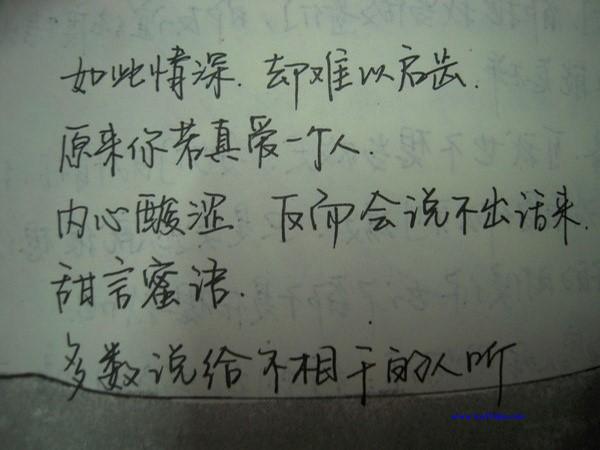 如此情深.却难以启齿.
原来你若真爱一个人.
内心酸涩 反而会说不出话来.
甜言蜜语.
多数说给不相干的人听